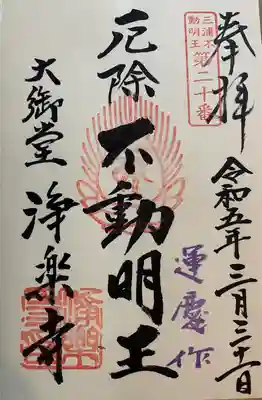 奉拝
三浦不動明王
第二十番
令和五年三月三十一日
厄除 不動明王
運慶作
大御堂 浄楽寺